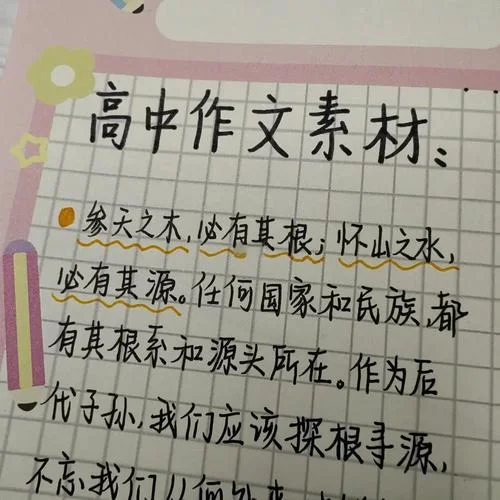 高中作文素材:
参天之木,必有其根;怀山之水,
必有其源。任何国家和民族,都
有其根系和源头所在。作为后
代子孙,我们应该探根寻源,
不忘我们从何处来